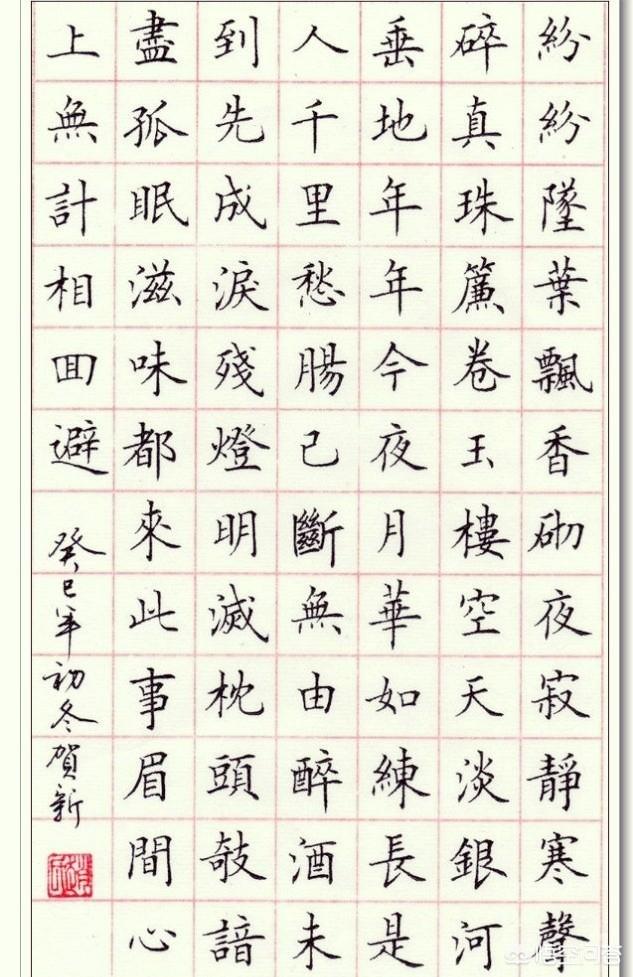 紛紛墜葉飄香砌夜寂靜寒聲
碎真珠簾卷玉樓空天淡銀河
垂地年年今夜月華如練長是
人千里愁腸已斷無由醉酒未
到先成淚殘燈明滅枕頭攲諳
盡孤眠滋味都來此事眉間心
上無計相囬避
癸巳年初冬賀新
悟空问答